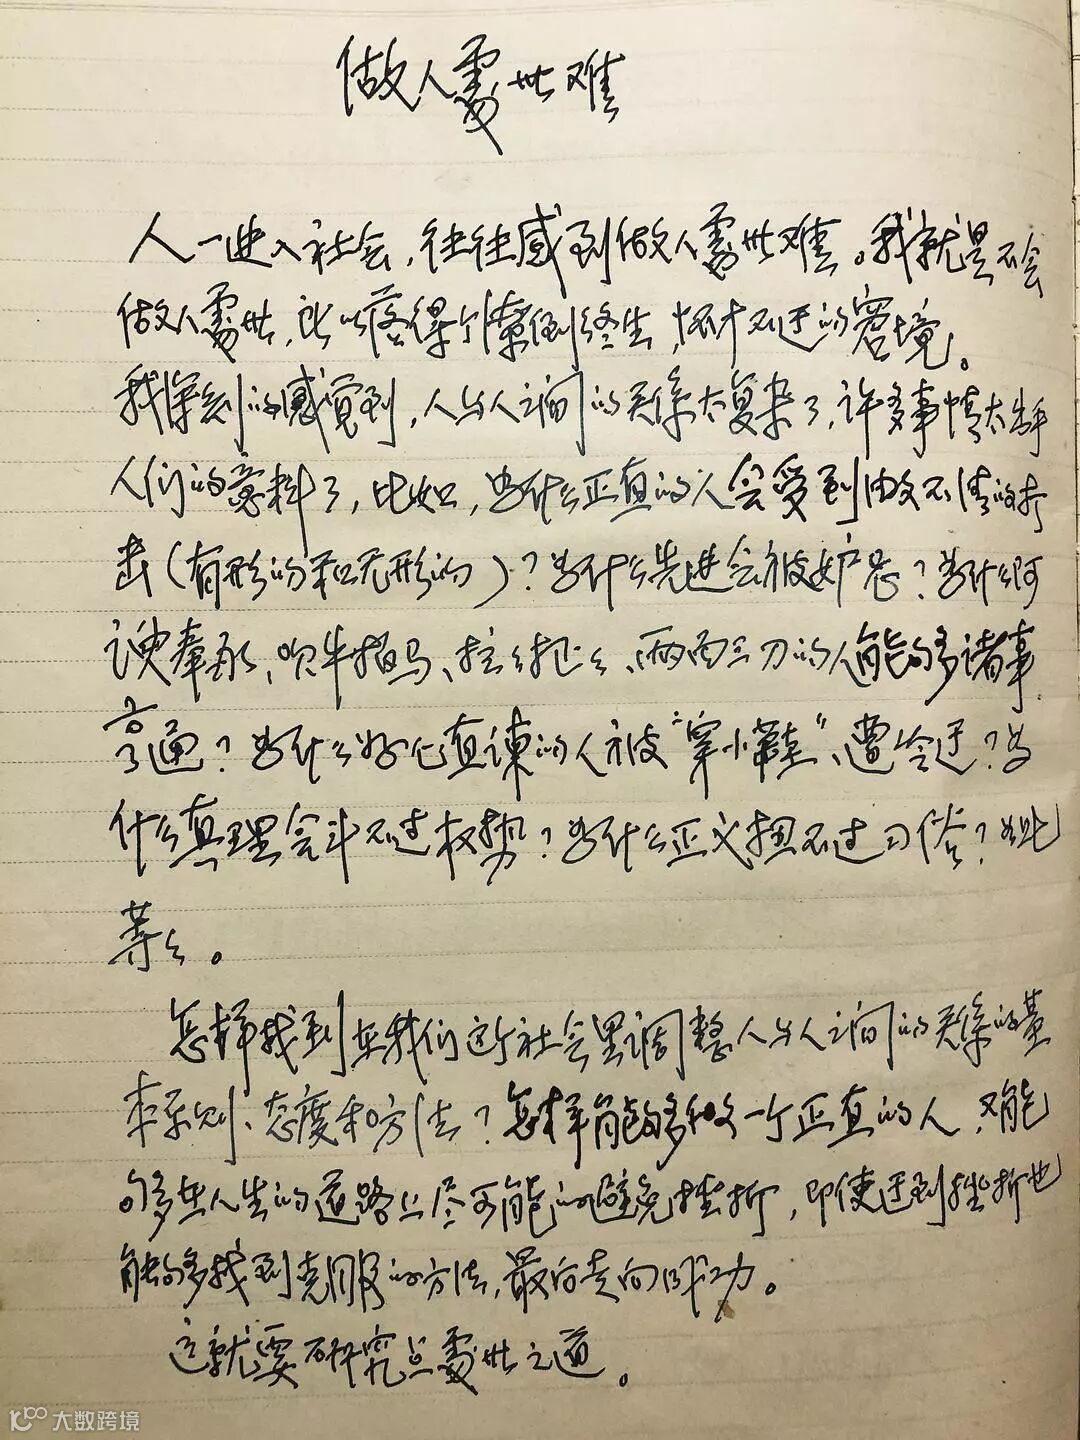 做人處世难
人一进入社会,往往感到做人處世难。我就是不会
做人處世,所以落得个潦倒终生,怀才不遇的窘境。
我深刻的感覚到,人与人之间的关係太复杂了,许多事情太出乎
人们的意料了,比如,为什么正直的人会受到由不得的打
击(有形的和无形的)?为什么先进会被妒忌?为什么阿
谀奉承、吹牛拍马、拉拉扯扯、两面三刀的人能够诸事
亨通?为什么好心直谏的人被“穿小鞋”、遭冷遇?为
什么真理会斗不过权势?为什么正义扭不过习俗?如此
等等。
怎样找到在我们这个社会里调整人与人之间的关係的基
本原则、态度和方法?怎样能够做一个正直的人,又能
够在人生的道路上尽可能的避免挫折,即使遇到挫折也
能够找到克服的方法,最后走向成功。
这就要研究点處世之道。
大数跨境